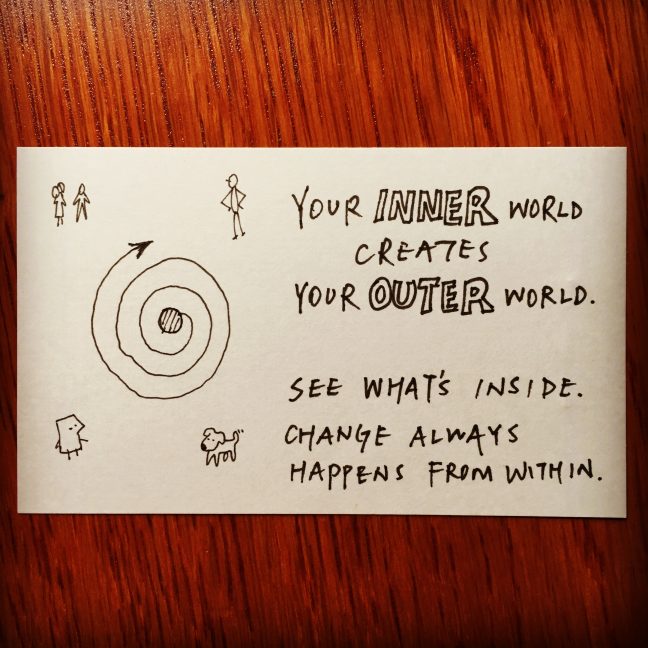 YOUR INNER WORLD
CREATES
YOUR OUTER WORLD.
SEE WHAT'S INSIDE.
CHANGE ALWAYS
HAPPENS FROM WITHIN.